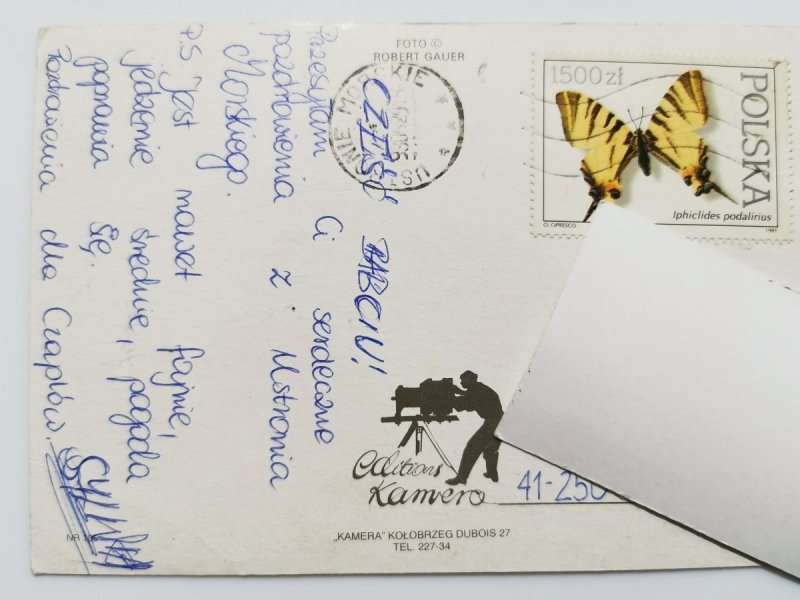 CZEŚĆ BABCIU!
Przesyłam Ci serdeczne
pozdrowienia z Ustronia
Morskiego.
P.S Jest nawet fajnie,
jedzenie średnie, pogoda
poprawia się.
Pozdrowienia dla Czaplów.
FOTO ©
ROBERT GAUER
USTRONIE MORSKIE
1500 zł
POLSKA
Iphiclides podalirius
O. OPRESCO
1991
editions
Kamera
41-250
„KAMERA" KOŁOBRZEG DUBOIS 27
TEL. 227-34
NR